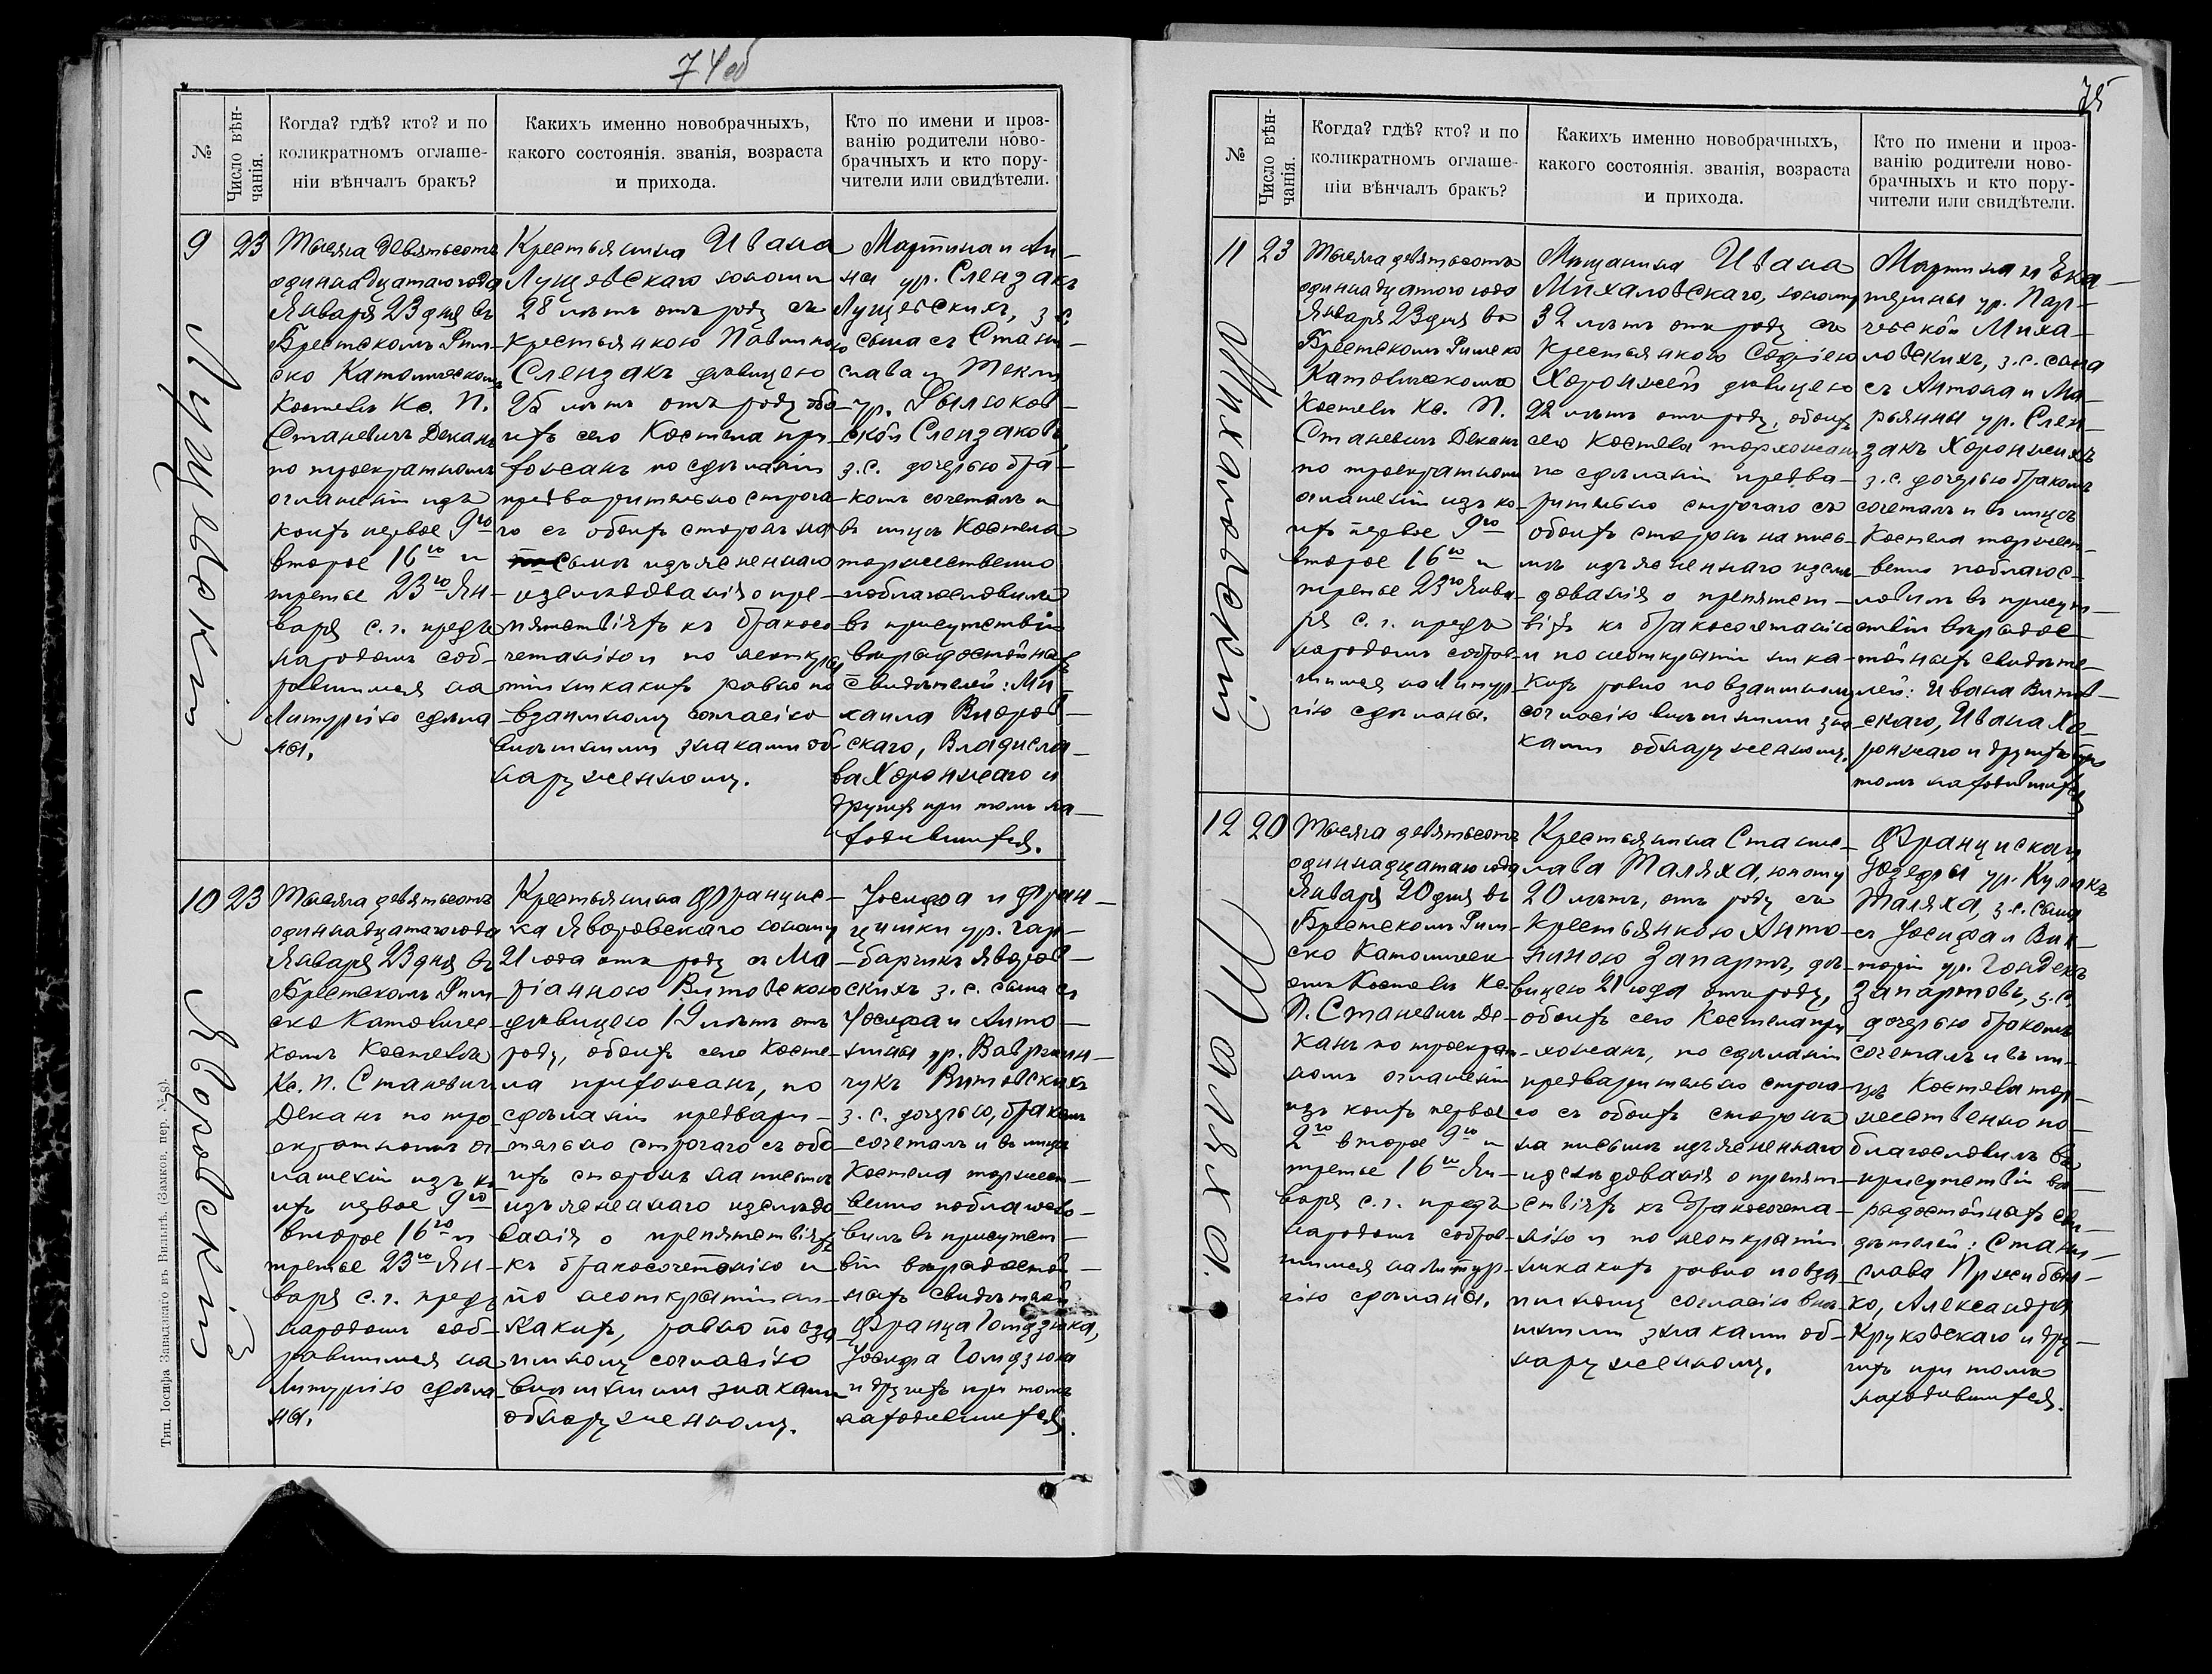 74об
№
Число вѣнчанія.
Когда? гдѣ? кто? и по
коликратномъ оглаше-
ніи вѣнчалъ бракъ?
Какихъ именно новобрачныхъ,
какого состоянія. званія, возраста
и прихода.
Кто по имени и проз-
ванію родители ново-
брачныхъ и кто пору-
чители или свидѣтели.
9
23
Лущевскій
Тысяча девятьсотъ
одиннадцатаго года
Января 23 дня въ
Брестскомъ Рим-
ско Католическомъ
Костелѣ Кс. П.
Станевичъ Деканъ
по троекратномъ
оглашеніи изъ
коихъ первое 9го
второе 16го и
третье 23го Ян-
варя с. г. предъ
народомъ соб-
равшимся на
Литургію сдѣла
ны.
Крестьянина Ивана
Лущевскаго юношу
28 лѣтъ отъ роду съ
крестьянкою Павлиною
Слензакъ дѣвицею
25 лѣтъ отъ роду обо-
ихъ сего Костела при-
хожанъ по сдѣланіи
предварительно строга-
го съ обоихъ сторонъ на
письмѣ изъясненнаго
изслѣдованія о пре-
пятствіяхъ къ бракосо-
четанію и по неоткры
тіи никакихъ равно по
взаимному согласію
внѣшними знаками об
наруженному.
Мартина и Ан-
ны ур. Слензакъ
Лущевскихъ, з. с.
сына съ Стани-
слава и Текли
ур. Фыльков-
ской Слензаковъ,
з. с. дочерью бра-
комъ сочеталъ и
въ лицѣ Костела
торжественно
поблагословилъ
въ присутствіи
вѣродостойныхъ
свидѣтелей: Ми
хаила Вигров-
скаго, Владисла-
ва Хоронжаго и
другихъ при томъ на-
ходившихся.
10
23
Яворовскій
Тысяча девятьсотъ
одиннадцатаго года
Января 23 дня въ
Брестскомъ Рим-
ско Католичес-
комъ Костелѣ
Кс. П. Станевичъ
Деканъ по тро
екратномъ ог
лашеніи изъ ко
ихъ первое 9го
второе 16го и
третье 23го Ян-
варя с. г. предъ
народомъ соб-
равшимся на
Литургію сдѣла
ны.
Крестьянина Францис-
ка Яворовскаго юношу
21 года отъ роду съ Ма
ріанною Витовскою
дѣвицею 19 лѣтъ отъ
роду, обоихъ сего Косте-
ла прихожанъ, по
сдѣланіи предвари-
тельно строгаго съ обо
ихъ сторонъ на письмѣ
изъясненнаго изслѣдо
ванія о препятствіяхъ
къ бракосочетанію и
по неоткрытіи ни-
какихъ, равно по вза
имному согласію
внѣшними знаками
обнаруженному.
Іосифа и Фран-
цишки ур. Гар-
барчикъ Яворов-
скихъ з. с. сына съ
Іосифа и Анто-
нины ур. Вавржин-
чукъ Витовскихъ
з. с. дочерью, бракомъ
сочеталъ и въ лицѣ
Костела торжест-
венно поблагосло-
вилъ въ присутст-
віи вѣродостой-
ныхъ свидѣтелей
Франца Гомдзюка,
Іосифа Гомдзюка
и другихъ при томъ
находившихся.
Тип. Іосифа Завадзкаго въ Вильнѣ. (Замков. пер. № 8).
75
№
Число вѣнчанія.
Когда? гдѣ? кто? и по
коликратномъ оглаше-
ніи вѣнчалъ бракъ?
Какихъ именно новобрачныхъ,
какого состоянія. званія, возраста
и прихода.
Кто по имени и проз-
ванію родители ново-
брачныхъ и кто пору-
чители или свидѣтели.
11
23
Михаловскій
Тысяча девятьсотъ
одиннадцатаго года
Января 23 дня во
Брестскомъ Римско
Католическомъ
Костелѣ Кс. П.
Станевичъ Деканъ
по троекратномъ
оглашеніи изъ ко-
ихъ первое 9го
второе 16го и
третье 23го Янва-
ря с. г. предъ
народомъ собрав-
шимся на Литур-
гію сдѣланы.
Мѣщанина Ивана
Михаловскаго, юношу
32 лѣтъ отъ роду съ
Крестьянкою Софіею
Хоронжей дѣвицею
22 лѣтъ отъ роду, обоихъ
сего Костела прихожанъ
по сдѣланіи предва-
рительно строгаго съ
обоихъ сторонъ на пись-
мѣ изъясненнаго изслѣ-
дованія о препятст-
віяхъ къ бракосочетанію
и по неоткрытіи ника-
кихъ равно по взаимному
согласію внѣшними зна
ками обнаруженному.
Мартина и Ека-
терины ур. Пар-
чевской Миха-
ловскихъ, з. с. сына
съ Антона и Ма-
рьянны ур. Слен-
закъ Хоронжихъ
з. с. дочерью бракомъ
сочеталъ и въ лицѣ
Костела торжест-
венно поблагос-
ловилъ въ присут-
ствіи вѣродос-
тойныхъ свидѣте-
лей: Ивана Витов-
скаго, Ивана Хо-
ронжаго и другихъ при
томъ находившихся
12
20
Таляха.
Тысяча девятьсотъ
одиннадцатаго года
Января 20 дня въ
Брестскомъ Рим-
ско Католичес-
комъ Костелѣ Кс.
П. Станевичъ Де-
канъ по троекрат-
номъ оглашеніи
изъ коихъ первое
2го второе 9го и
третье 16го Ян-
варя с. г. предъ
народомъ собрав-
шимся на Литур-
гію сдѣланы.
Крестьянина Станис-
лава Таляха, юношу
20 лѣтъ, отъ роду съ
Крестьянкою Анто-
ниною Запартъ, дѣ-
вицею 21 года отъ роду,
обоихъ сего Костела при
хожанъ, по сдѣланіи
предварительно строга-
го съ обоихъ сторонъ
на письмѣ изъясненнаго
изслѣдованія о препят-
ствіяхъ къ бракосочета-
нію и по неоткрытіи
никакихъ равно по вза
имному согласію внѣ-
шними знаками об-
наруженному.
Франциска и
Юзефы ур. Кулакъ
Таляха, з. с. сына
съ Іосифа и Вик-
торіи ур. Гондекъ
Запартовъ, з. с.
дочерью бракомъ
сочеталъ и въ ли-
цѣ Костела тор-
жественно по-
благословилъ въ
присутствіи вѣ-
родостойныхъ сви-
дѣтелей: Стани-
слава Пржибыл-
ко, Александра
Круковскаго и дру-
гихъ при томъ
находившихся.